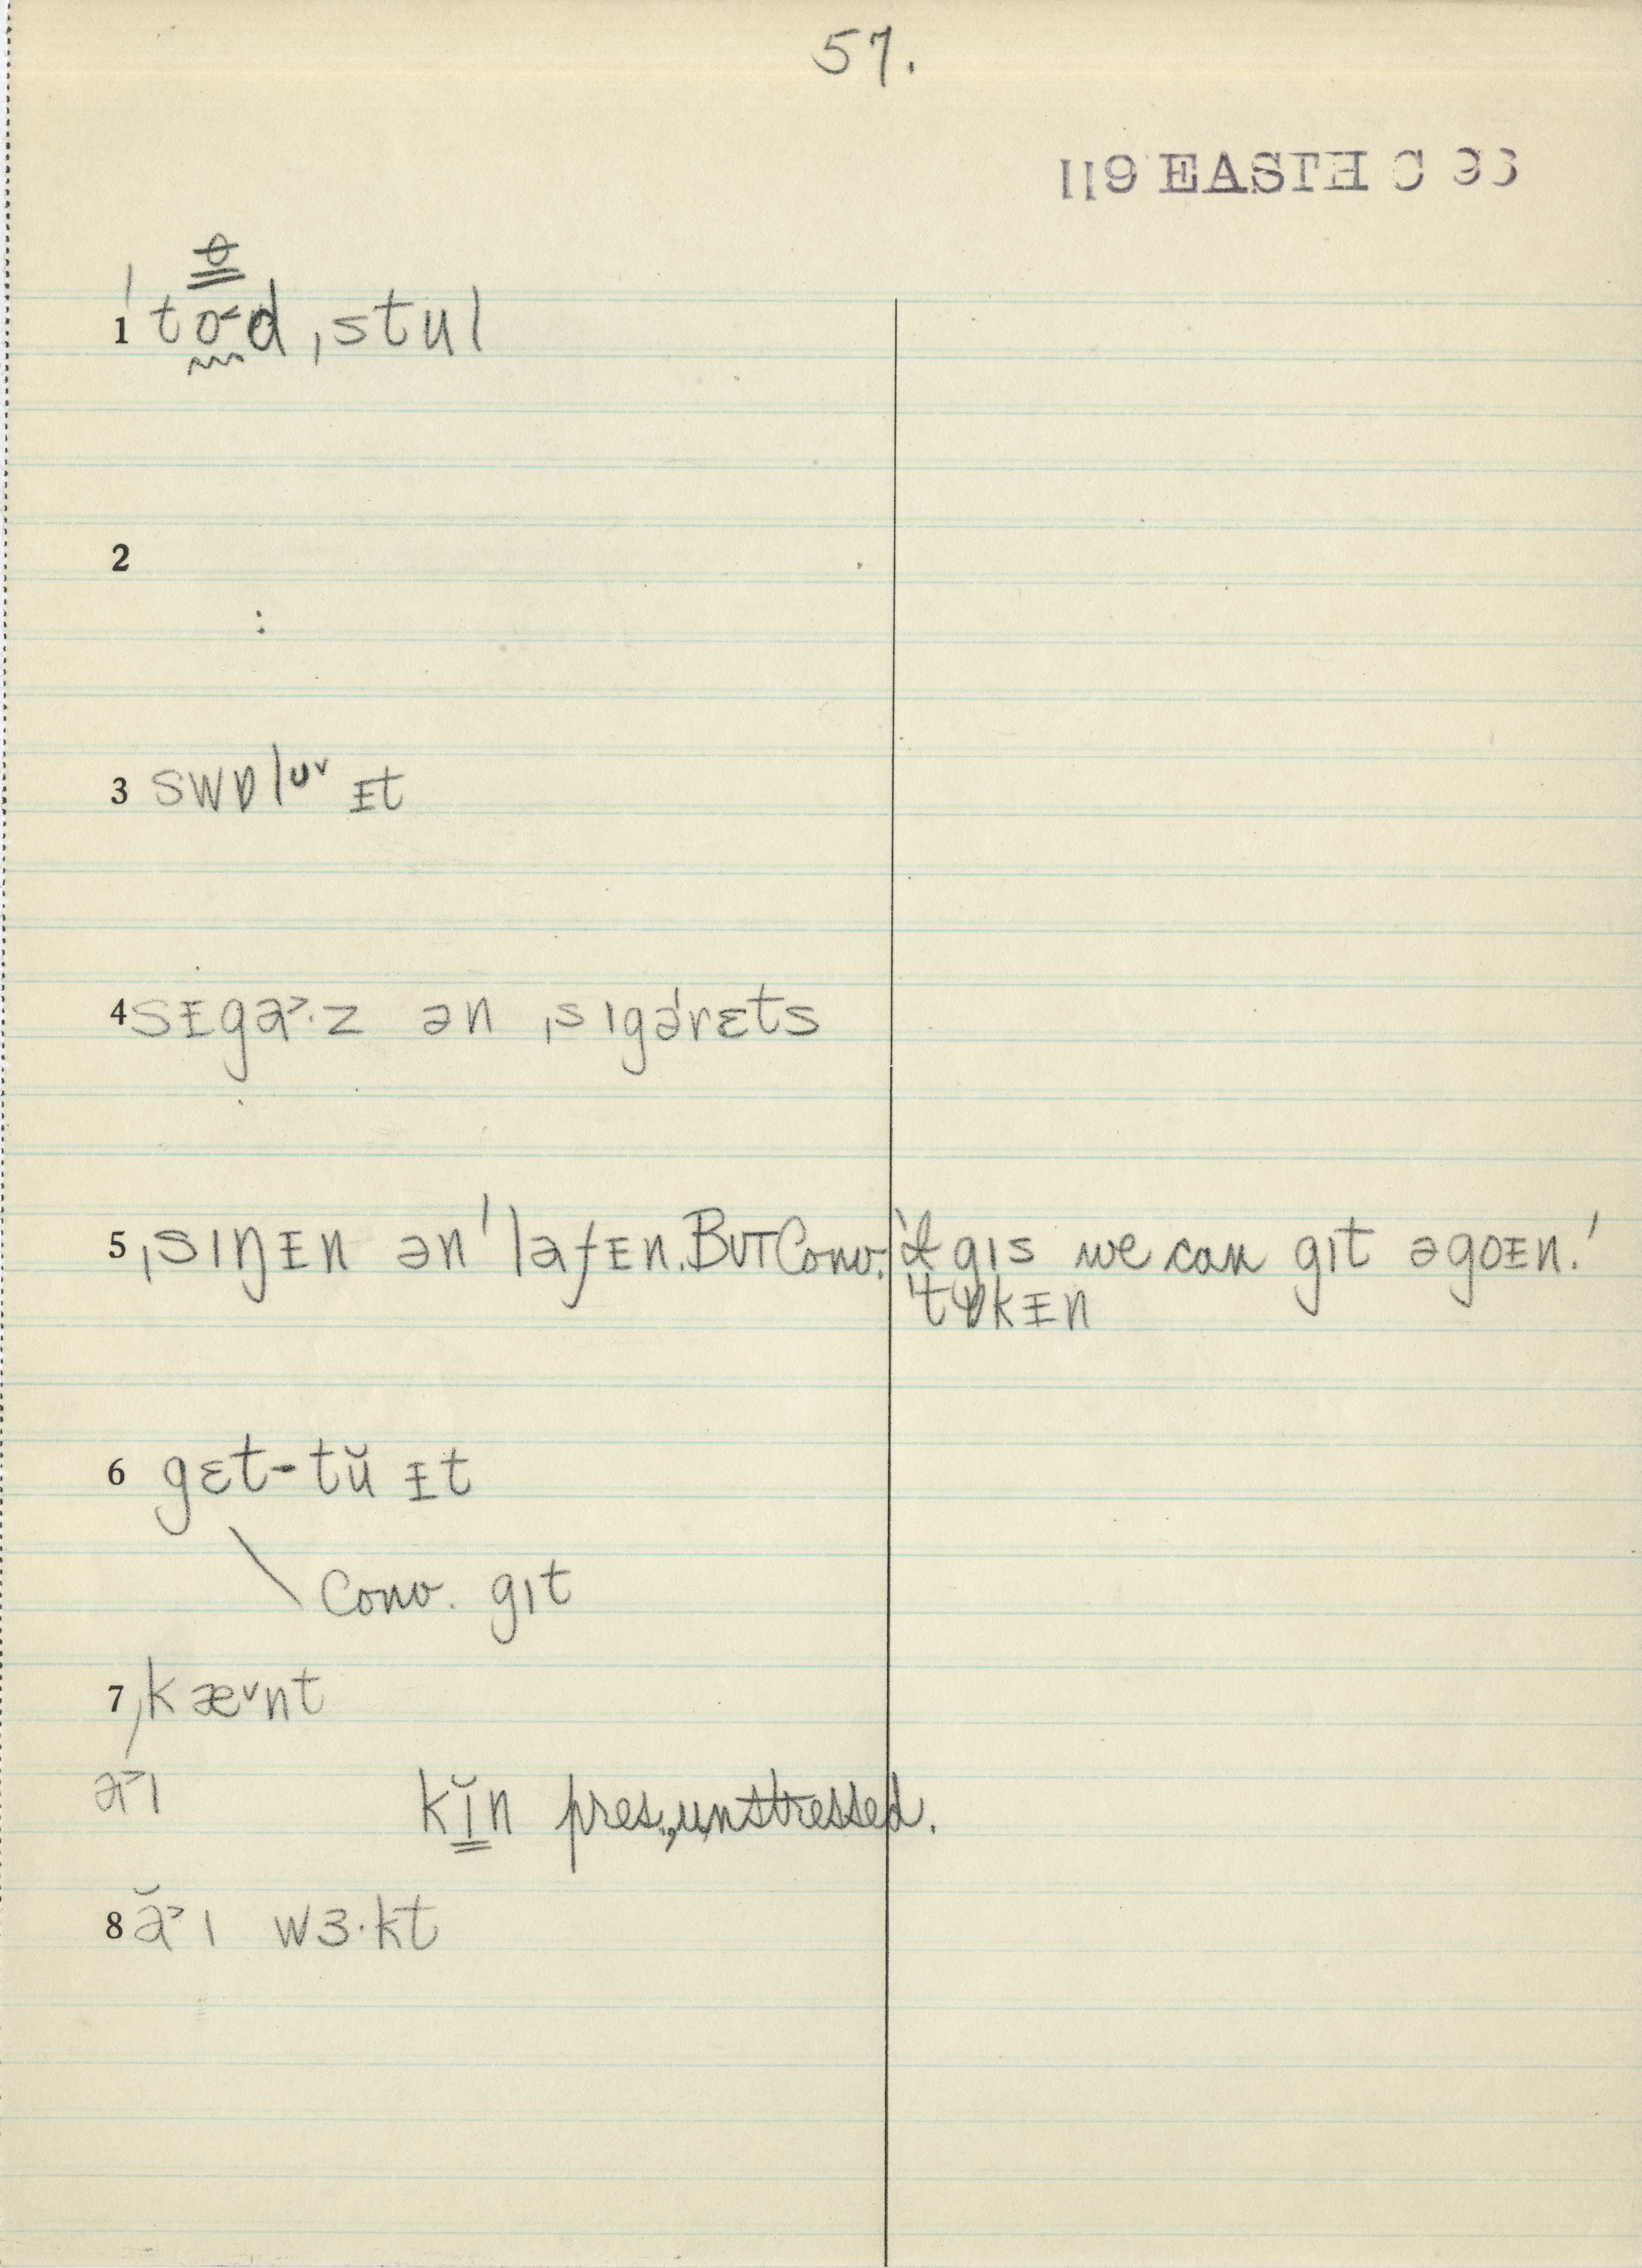 57.
119 EASTH C 93
ɵ
1 ˈto˂d ˌstul
2
:
3 swɒlᴜ˅ ᵻt
4 sᵻga˃·z ən ˌsɪgərɛts
5 ˌsɪŋᵻn ən ˈlafᵻn. BUT Conv. 'I gɪs we can gɪt əgoᵻn.'
ˈtɒkᵻn
6 gɛt-tŭ ᵻt
Conv. gɪt
7 kæ˅nt
a˃ɪ kĭn pres., unstressed.
8 ă˃ɪ wɜ·kt